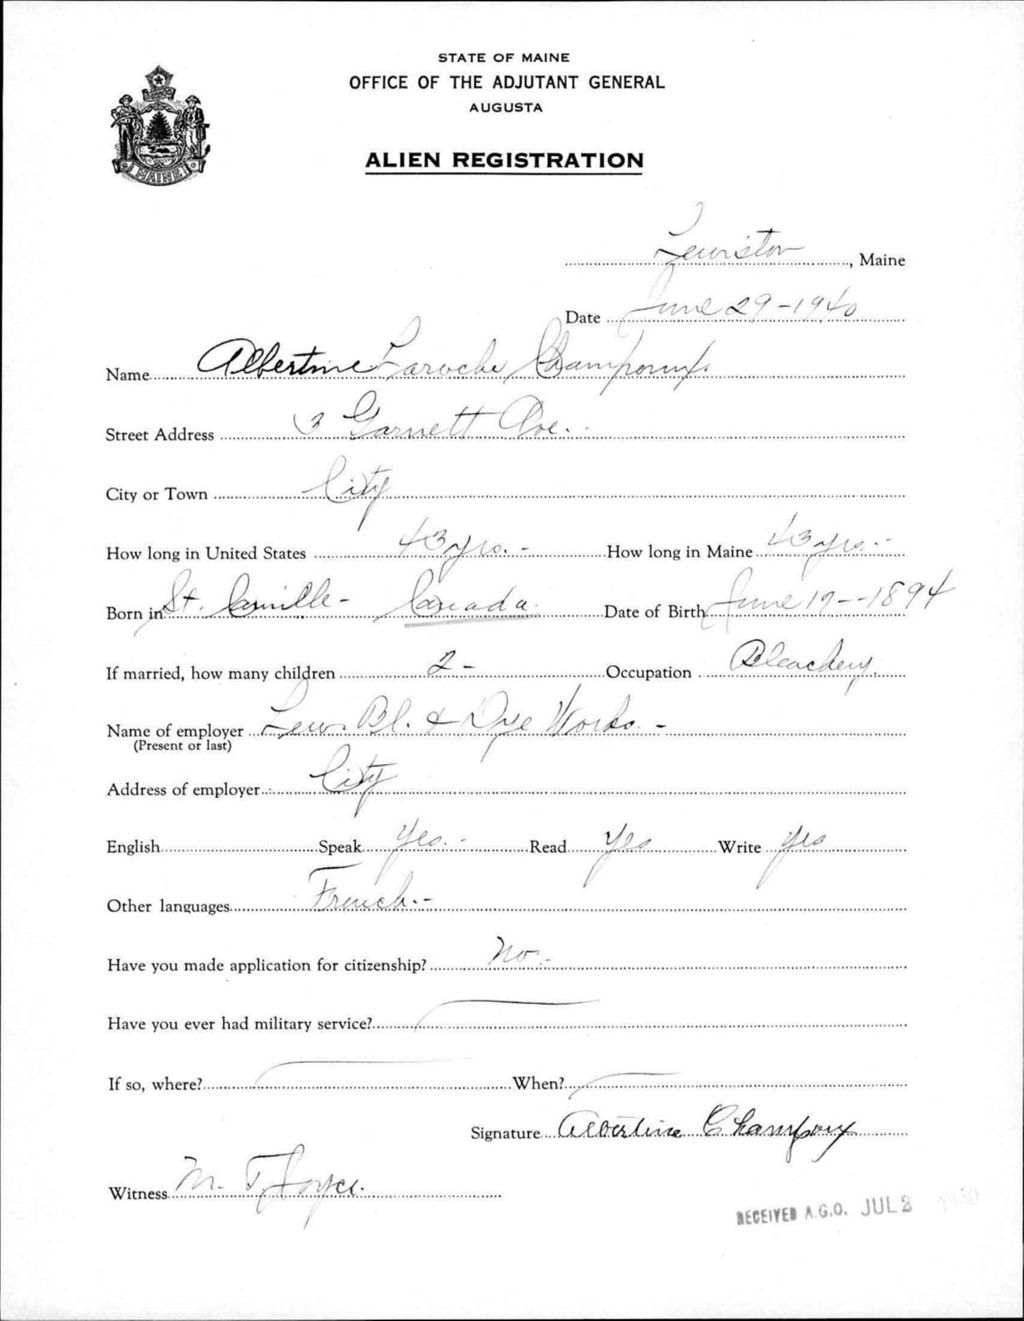 STATE OF MAINE
OFFICE OF THE ADJUTANT GENERAL
AUGUSTA
MAINE
ALIEN REGISTRATION
Lewiston, Maine
Date June 29-1940
Name Albertine Laroche
Street Address 3 Garnett Ave.
City or Town City
How long in United States 43 yrs. - How long in Maine 43 yrs. -
Born in St. Camille - Canada Date of Birth June 19--1894
If married, how many children 2 - Occupation Bleachery
Name of employer Lew. Bl. & Dye Works. -
(Present or last)
Address of employer City
English Speak Yes. - Read Yes Write Yes
Other languages French. -
Have you made application for citizenship? No. -
Have you ever had military service?
If so, where? When?
Signature Albertina
Witness M. T. Joyce.
RECEIVED A.G.O. JUL 2 1940